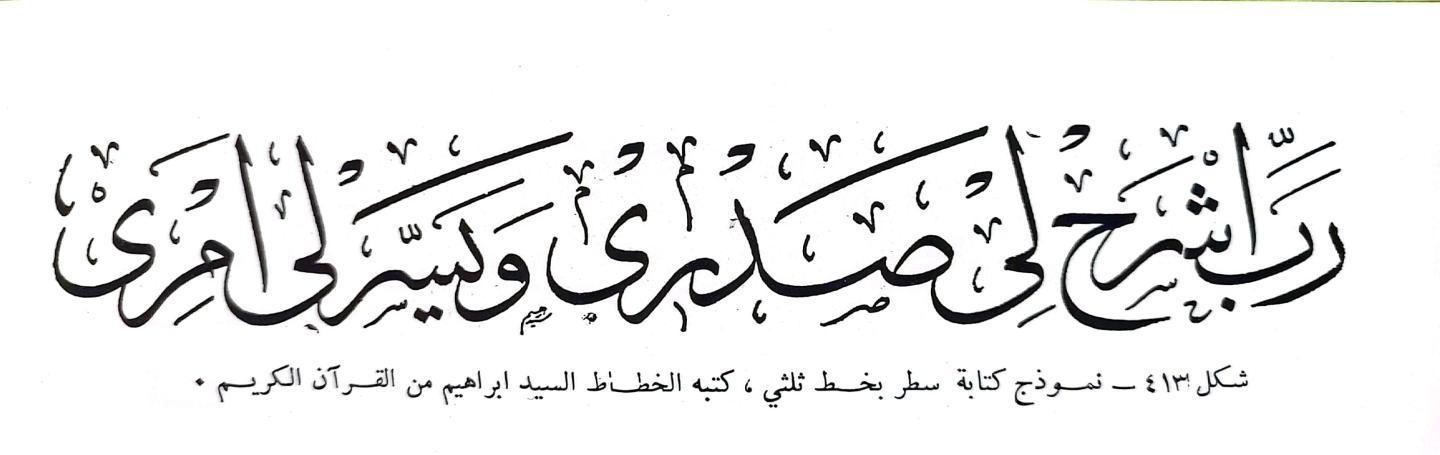 رَبِّ اشْرَحْ لِى صَدْرِى وَيَسِّرْ لِى اَمْرِى
شكل ٤١٣ ـ نمـوذج كتابة سطر بخـط ثلثي ، كتبه الخطـاط السيد ابراهيم من القـرآن الكريـم .